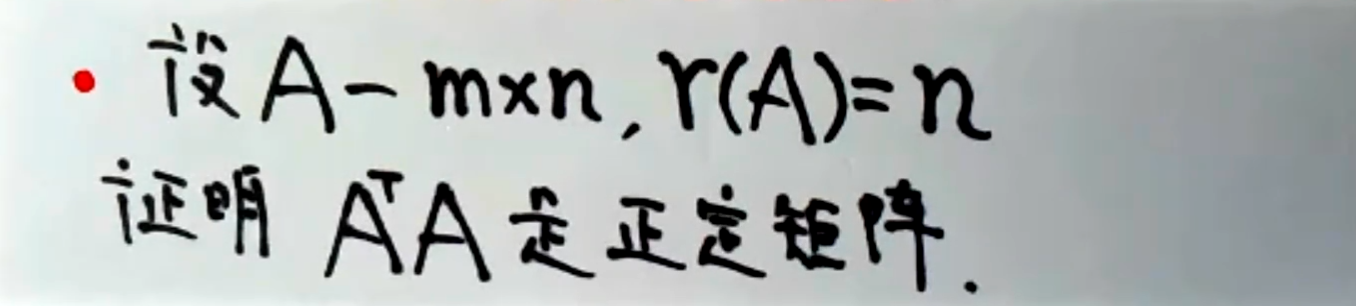 • 设 A - m×n, r(A)=n
证明 AᵀA 是正定矩阵.